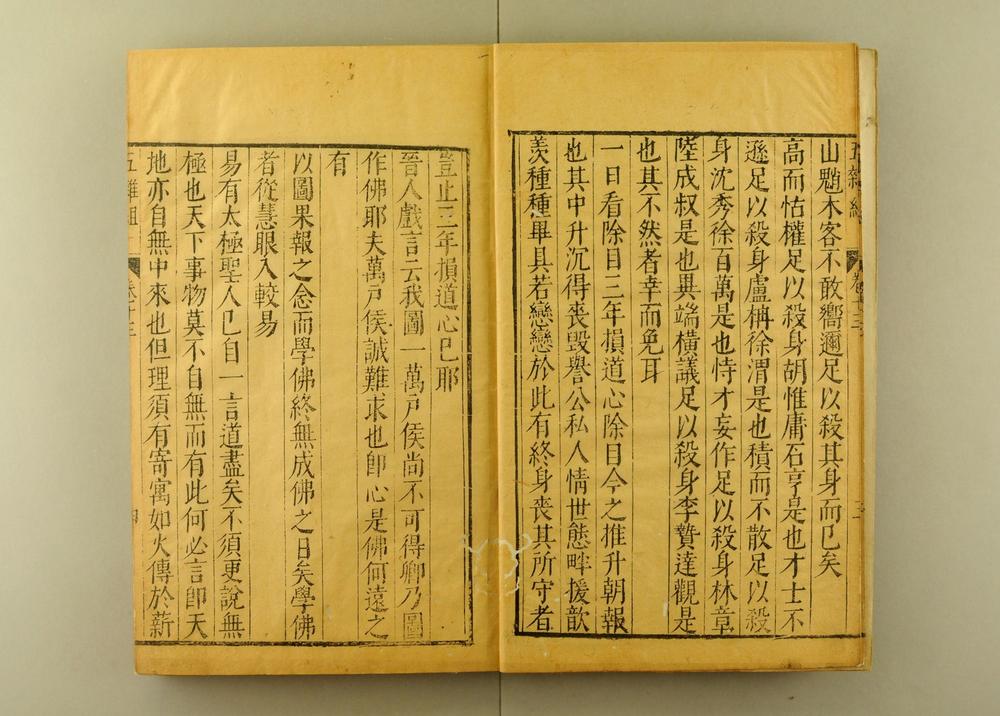 山魈木客不敢嚮邇足以殺其身而已矣
高而怙權足以殺身胡惟庸石亨是也才士不
遜足以殺身盧柟徐渭是也積而不散足以殺
身沈秀徐百萬是也恃才妄作足以殺身林章
陸成叔是也異端橫議足以殺身李贄達觀是
也其不然者幸而免耳
一日看除目三年損道心除目今之推升朝報
也其中升沉得喪毀譽公私人情世態畔援歆
羨種種畢具若戀戀於此有終身喪其所守者
豈止三年損道心已耶
晉人戲言云我圖一萬戶侯尚不可得卿乃圖
作佛耶夫萬戶侯誠難求也卽心是佛何遠之
有
以圖果報之念而學佛終無成佛之日矣學佛
者從慧眼入較易
易有太極聖人已自一言道盡矣不須更說無
極也天下事物莫不自無而有此何必言卽天
地亦自無中來也但理須有寄寓如火傳於薪
五雜俎
卷十三
四